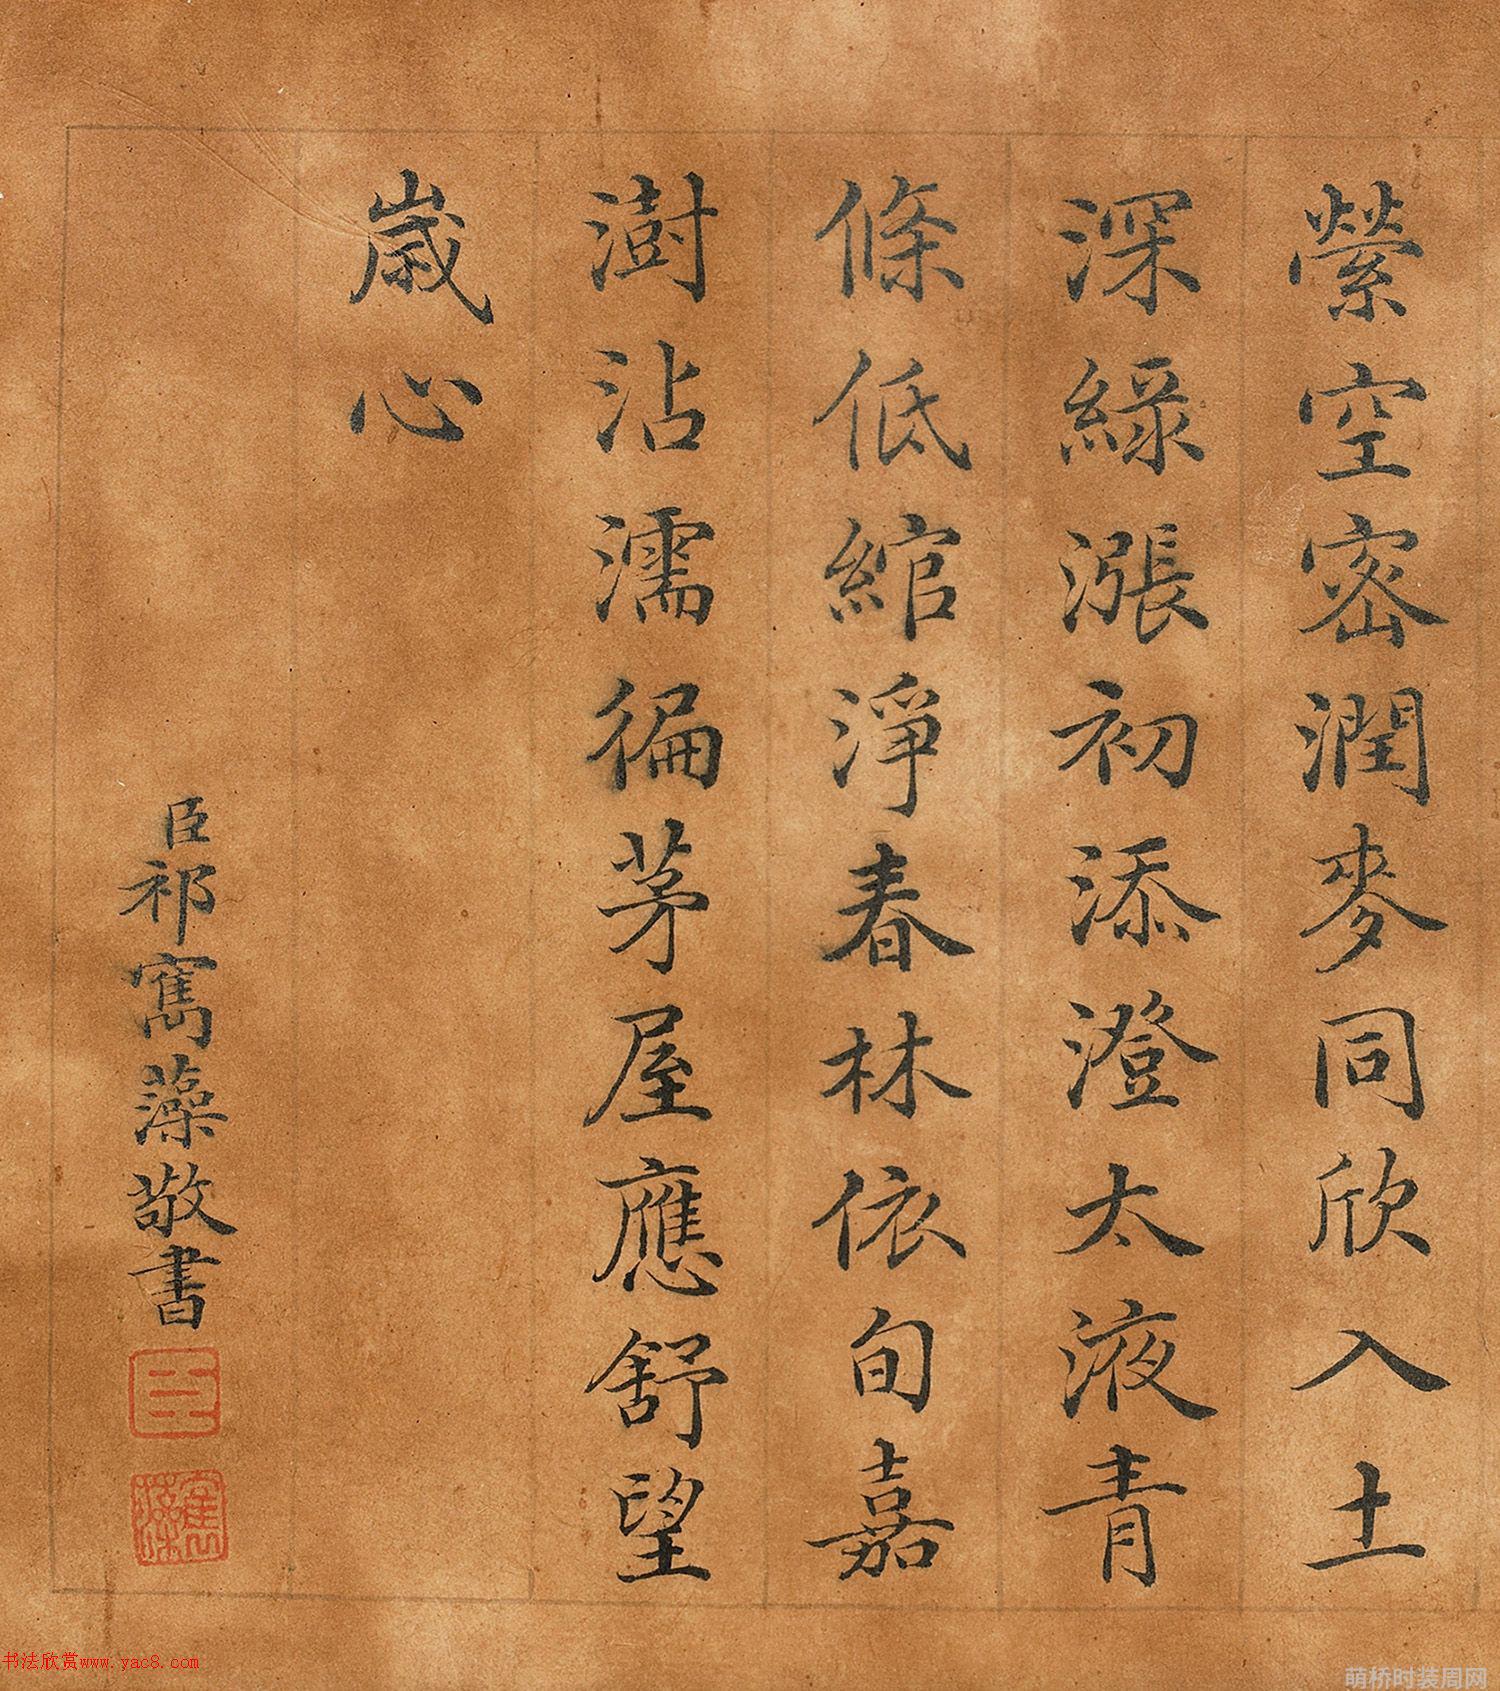 縈空密潤麥同欣入土
深綠漲初添澄太液青
條低綰淨春林依旬嘉
澍沾濡徧茅屋應舒望
歲心
臣祁寯藻敬書
臣
寯藻
书法欣赏www.yac8.com
萌桥时装周网